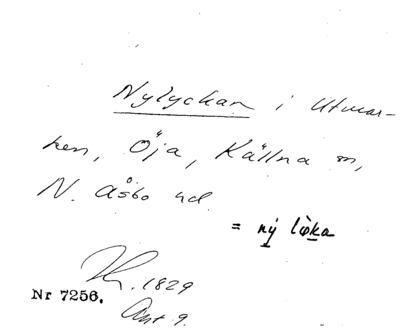 Nylyckan i Utmar-
ken, Öja, Källna sn,
N. Åsbo hd.
= ný lø̀ka
Nr 7256. 1829
Ant. 9.